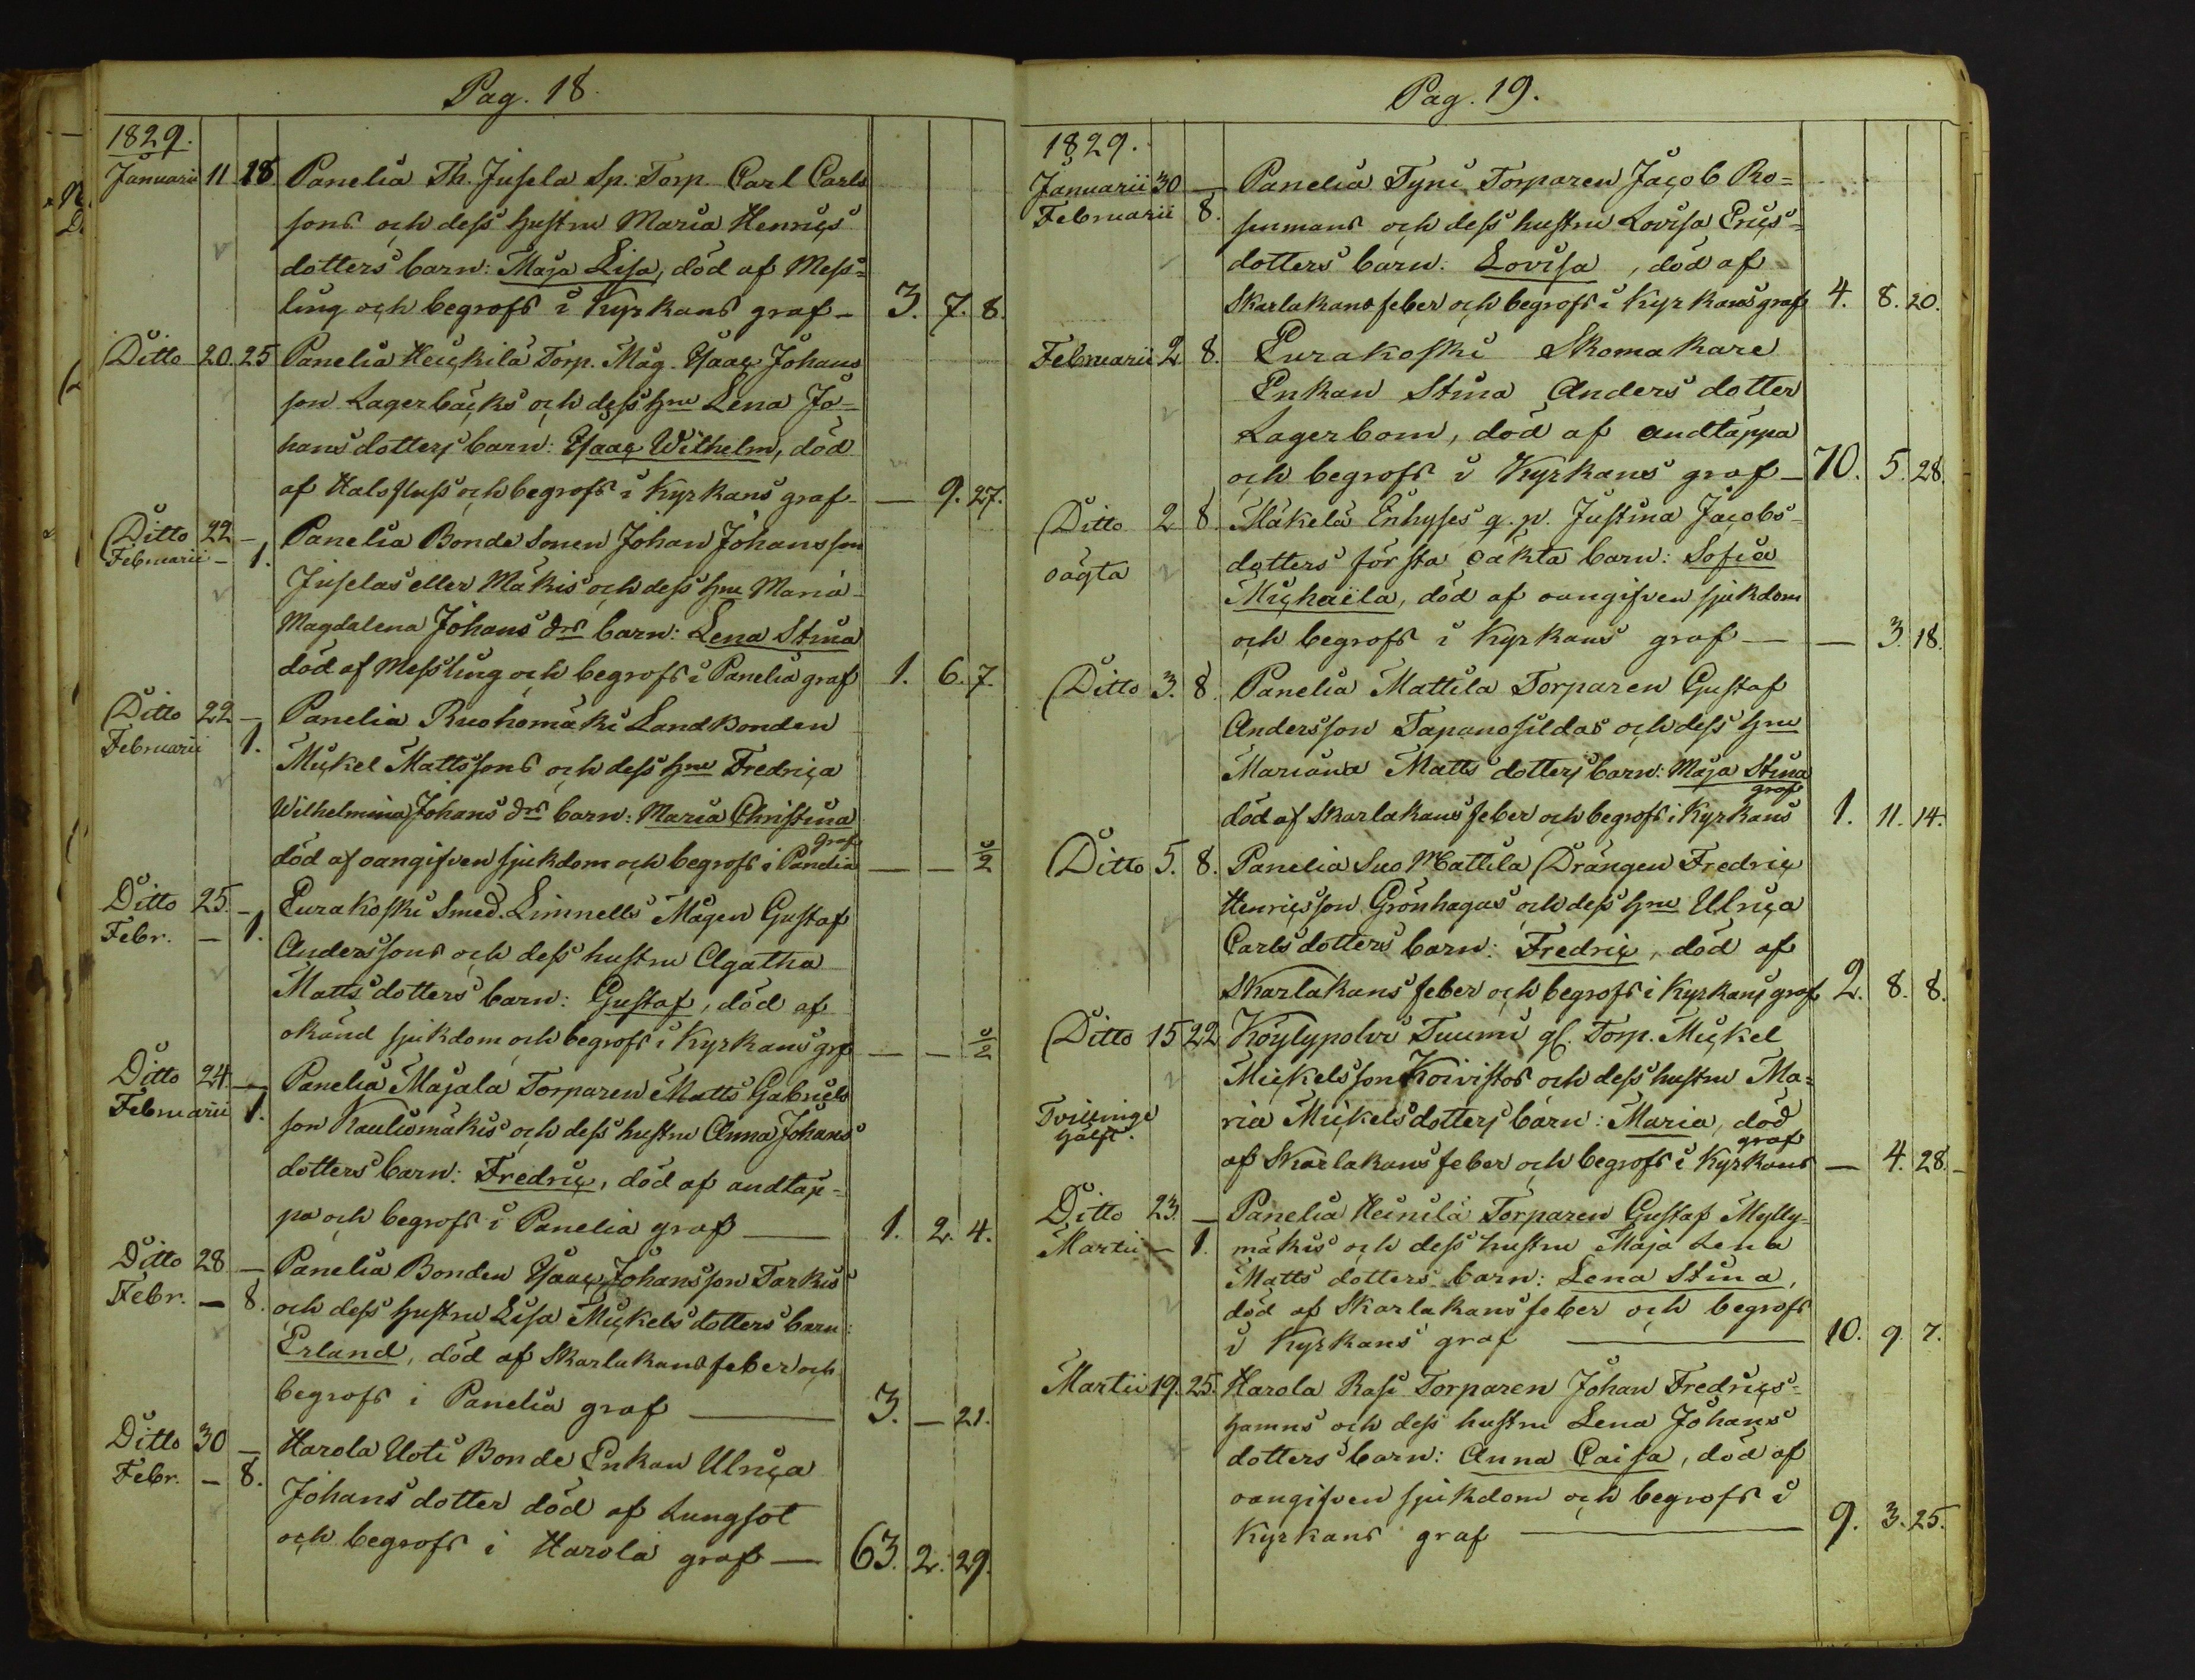 Pag. 18.
1829.
Januarii 11 18 Panelia Th. Jusela Sp. Torp. Carl Carls
sons och dess hustru Maria Henrics
dotters barn: Maja Lisa, död af Mess=
ling och begrofs i Kyrkans graf – 3. 7. 8.
Ditto 20. 25 Panelia Heickilä Torp. Måg. Isaac Johans
son Lagerbäcks och dess hru Lena Jo=
hansdotters barn: Isaac Wilhelm, död
af Halsfluss och begrofs i Kyrkans graf – 9. 27.
Ditto 22 – Panelia Bonde Sonen Johan Johansson
Februarii – 1. Juselas eller Mäkis och dess hru Maria
Magdalena Johans drs barn: Lena Stina
död af Messling och begrofs i Panelia graf 1. 6. 7.
Ditto 22 – Panelia Ruohomäki Landbonden
Februarii 1. Mickel Mattssons och dess hru Fredrica
Wilhelmina Johans drs barn: Maria Christina
graf
död af oangifven sjukdom och begrofs i Panelia – – 2
Ditto 25. – Eurakoski Smed. Linnells Mågen Gustaf
Febr. – 1. Anderssons och dess hustru Agatha
Matts dotters barn: Gustaf, död af
okänd sjukdom och begrofs i Kyrkans grf – – 2
Ditto 24. – Panelia Majala Torparen Matts Gabriels
Februarii 1. son Kauliomäkis och dess hustru Anna Johans
dotters barn: Fredric, död af andtäp=
pa och begrofs i Panelia graf – 1. 2. 4.
Ditto 28 – Panelia Bonden Isaac Johansson Tarkis
Febr. – 8. och dess hustru Lisa Mickels dotters barn:
Erland, död af Skarlakansfeber och
begrofs i Panelia graf – 3. – 21.
Ditto 30 – Harola Uoti Bonde Enkan Ulrica
Febr. – 8. Johans dotter död af Lungsot
och begrofs i Harola graf – 63. 2. 29.
Pag. 19.
1829.
Januarii 30 – Panelia Tyni Torparen Jacob Ro=
Februarii 8. senmans och dess hustru Lovisa Erics=
dotters barn: Lovisa, död af
Skarlakansfeber och begrofs i Kyrkans graf 4. 8. 20.
Februarii 2 8. Eurakoski Skomakare
Enkan Stina Anders dotter
Lagerbom, död af andtäppa
och begrofs i Kyrkans graf – 70. 5. 28.
Ditto 2 8. Mäkelä Inhyses q. p. Justina Jacobs=
oägta dotters första oäkta barn: Sofia
Michaela, död af oangifven sjukdom
och begrofs i Kyrkans graf – – 3. 18.
Ditto 3. 8. Panelia Mattila Torparen Gustaf
Andersson Tapanosildas och dess hru
Mariana Matts dotters barn: Maja Stina
graf
död af Skarlakans feber och begrofs i Kyrkans 1. 11. 14.
Ditto 5. 8. Panelia Suo Mattila Drängen Fredric
Henricsson Grönhagas och dess hru Ulrica
Carls dotters barn: Fredric, död af
Skarlakans feber och begrofs i Kyrkans graf 2. 8. 8.
Ditto 15 22 Köylypolvi Tuumi gl. Torp. Mickel
Mickelsson Koivistos och dess hustru Ma=
Tvillinge ria Mickels dotters barn: Maria, död
hälft. graf
af Skarlakans feber och begrofs i Kyrkans – 4. 28.
Ditto 23. – Panelia Heinilä Torparen Gustaf Mylly=
Martii – 1. mäkis och dess hustru Maja Lena
Matts dotters barn: Lena Stina,
död af Skarlakans feber och begrofs
i Kyrkans graf – 10. 9. 7.
Martii 19. 25. Harola Rasi Torparen Johan Fredrics=
hamns och dess hustru Lena Johans
dotters barn: Anna Caisa, död af
oangifven sjukdom och begrofs i
Kyrkans graf – 9. 3. 25.